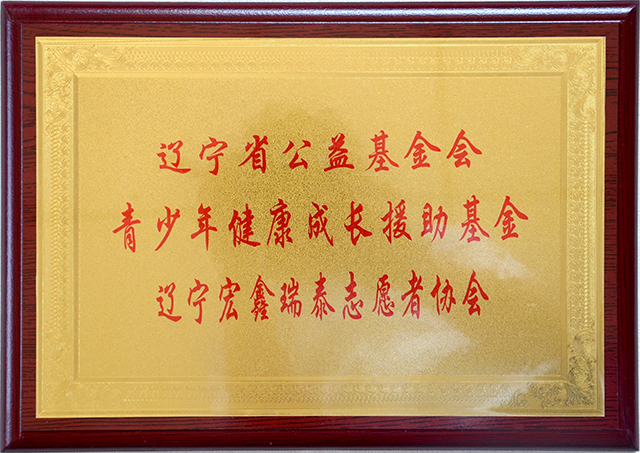 辽宁省公益基金会
青少年健康成长援助基金
辽宁宏鑫瑞泰志愿者协会